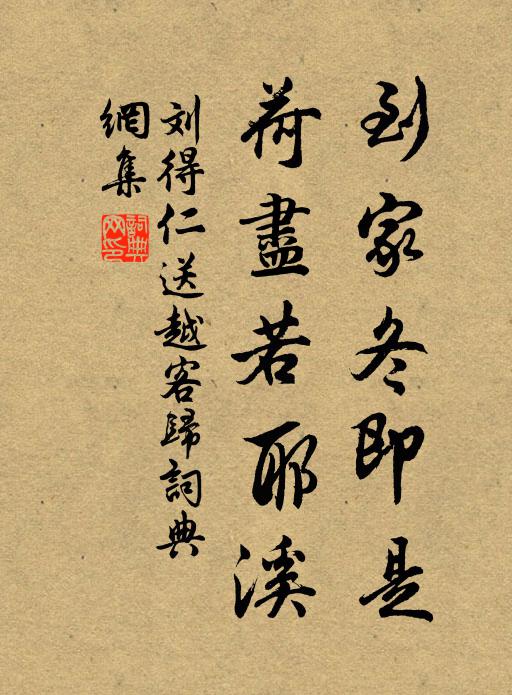 到家冬即是
荷盡若耶溪
刘得仁送越客歸詞典
網集
詞典
网印